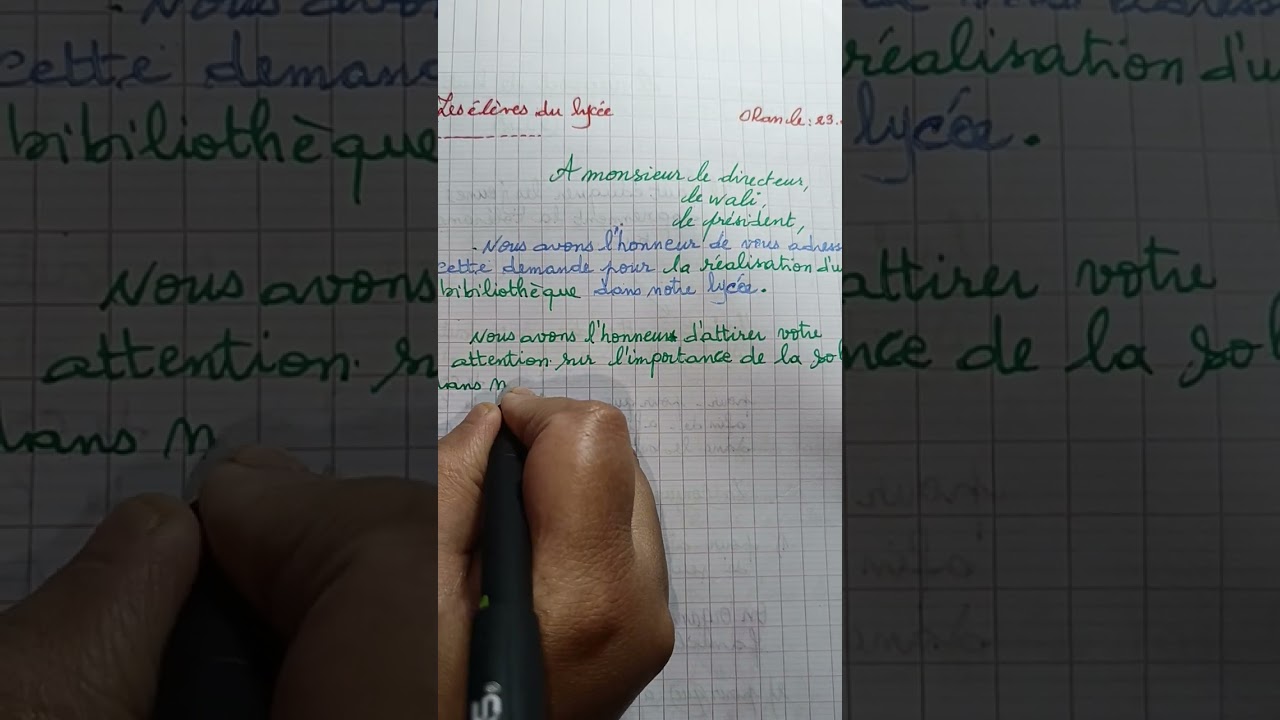 Les élèves du lycée
Oran le: 23.
A monsieur le directeur,
le wali,
le président,
. Nous avons l'honneur de vous adress
cette demande pour la réalisation d'u
bibiliothèque dans notre lycée.
Nous avons l'honneur d'attirer votre
attention sur l'importance de la sol
dans n